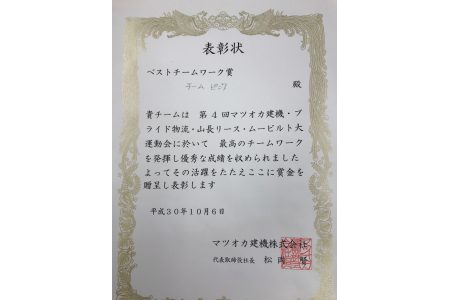 表彰状
ベストチームワーク賞
チーム ピンク 殿
貴チームは 第4回マツオカ建機・プ
ライド物流・山長リース・ムービルト大
運動会に於いて 最高のチームワーク
を発揮し優秀な成績を収められました
よってその活躍をたたえここに賞金を
贈呈し表彰します
平成30年10月6日
マツオカ建機株式会社
代表取締役社長 松岡 賢